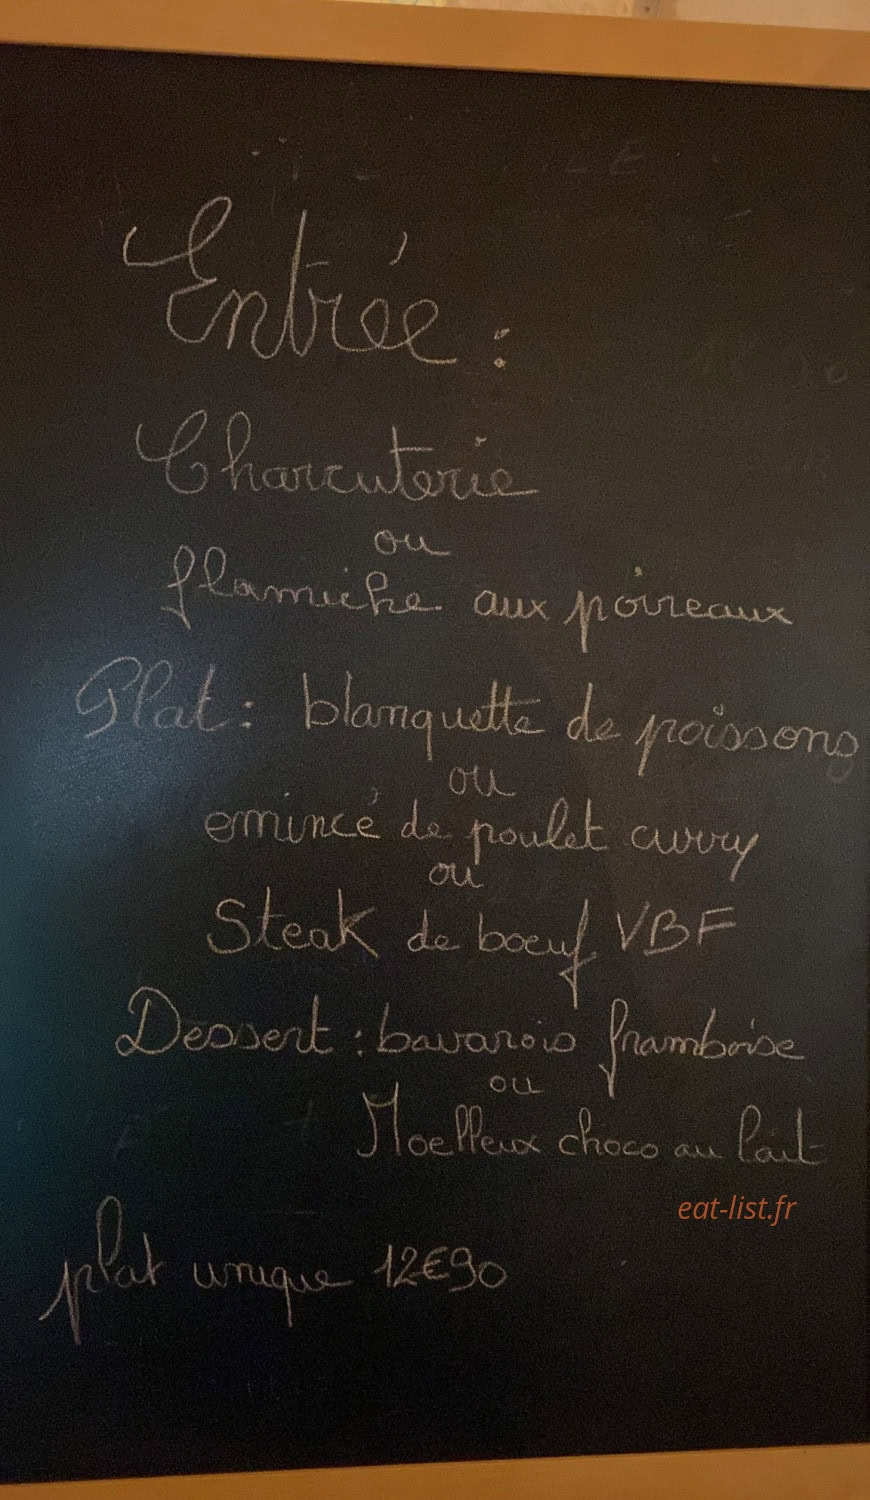 Entrée :
Charcuterie
ou
flamiche aux poireaux
Plat : blanquette de poissons
ou
emincé de poulet curry
ou
Steak de boeuf VBF
Dessert : bavarois framboise
ou
Moelleux choco au lait
eat-list.fr
plat unique 12€90